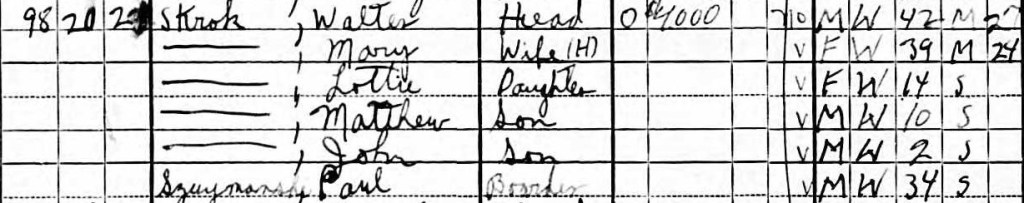 98 20 Skrok, Walter Head O 4000 M W 42 M 27
, Mary Wife (H) V F W 39 M 24
, Lottie Daughter V F W 14 S
, Matthew Son V M W 10 S
, John Son V M W 2 S
Paul Boarder V M W 34 S